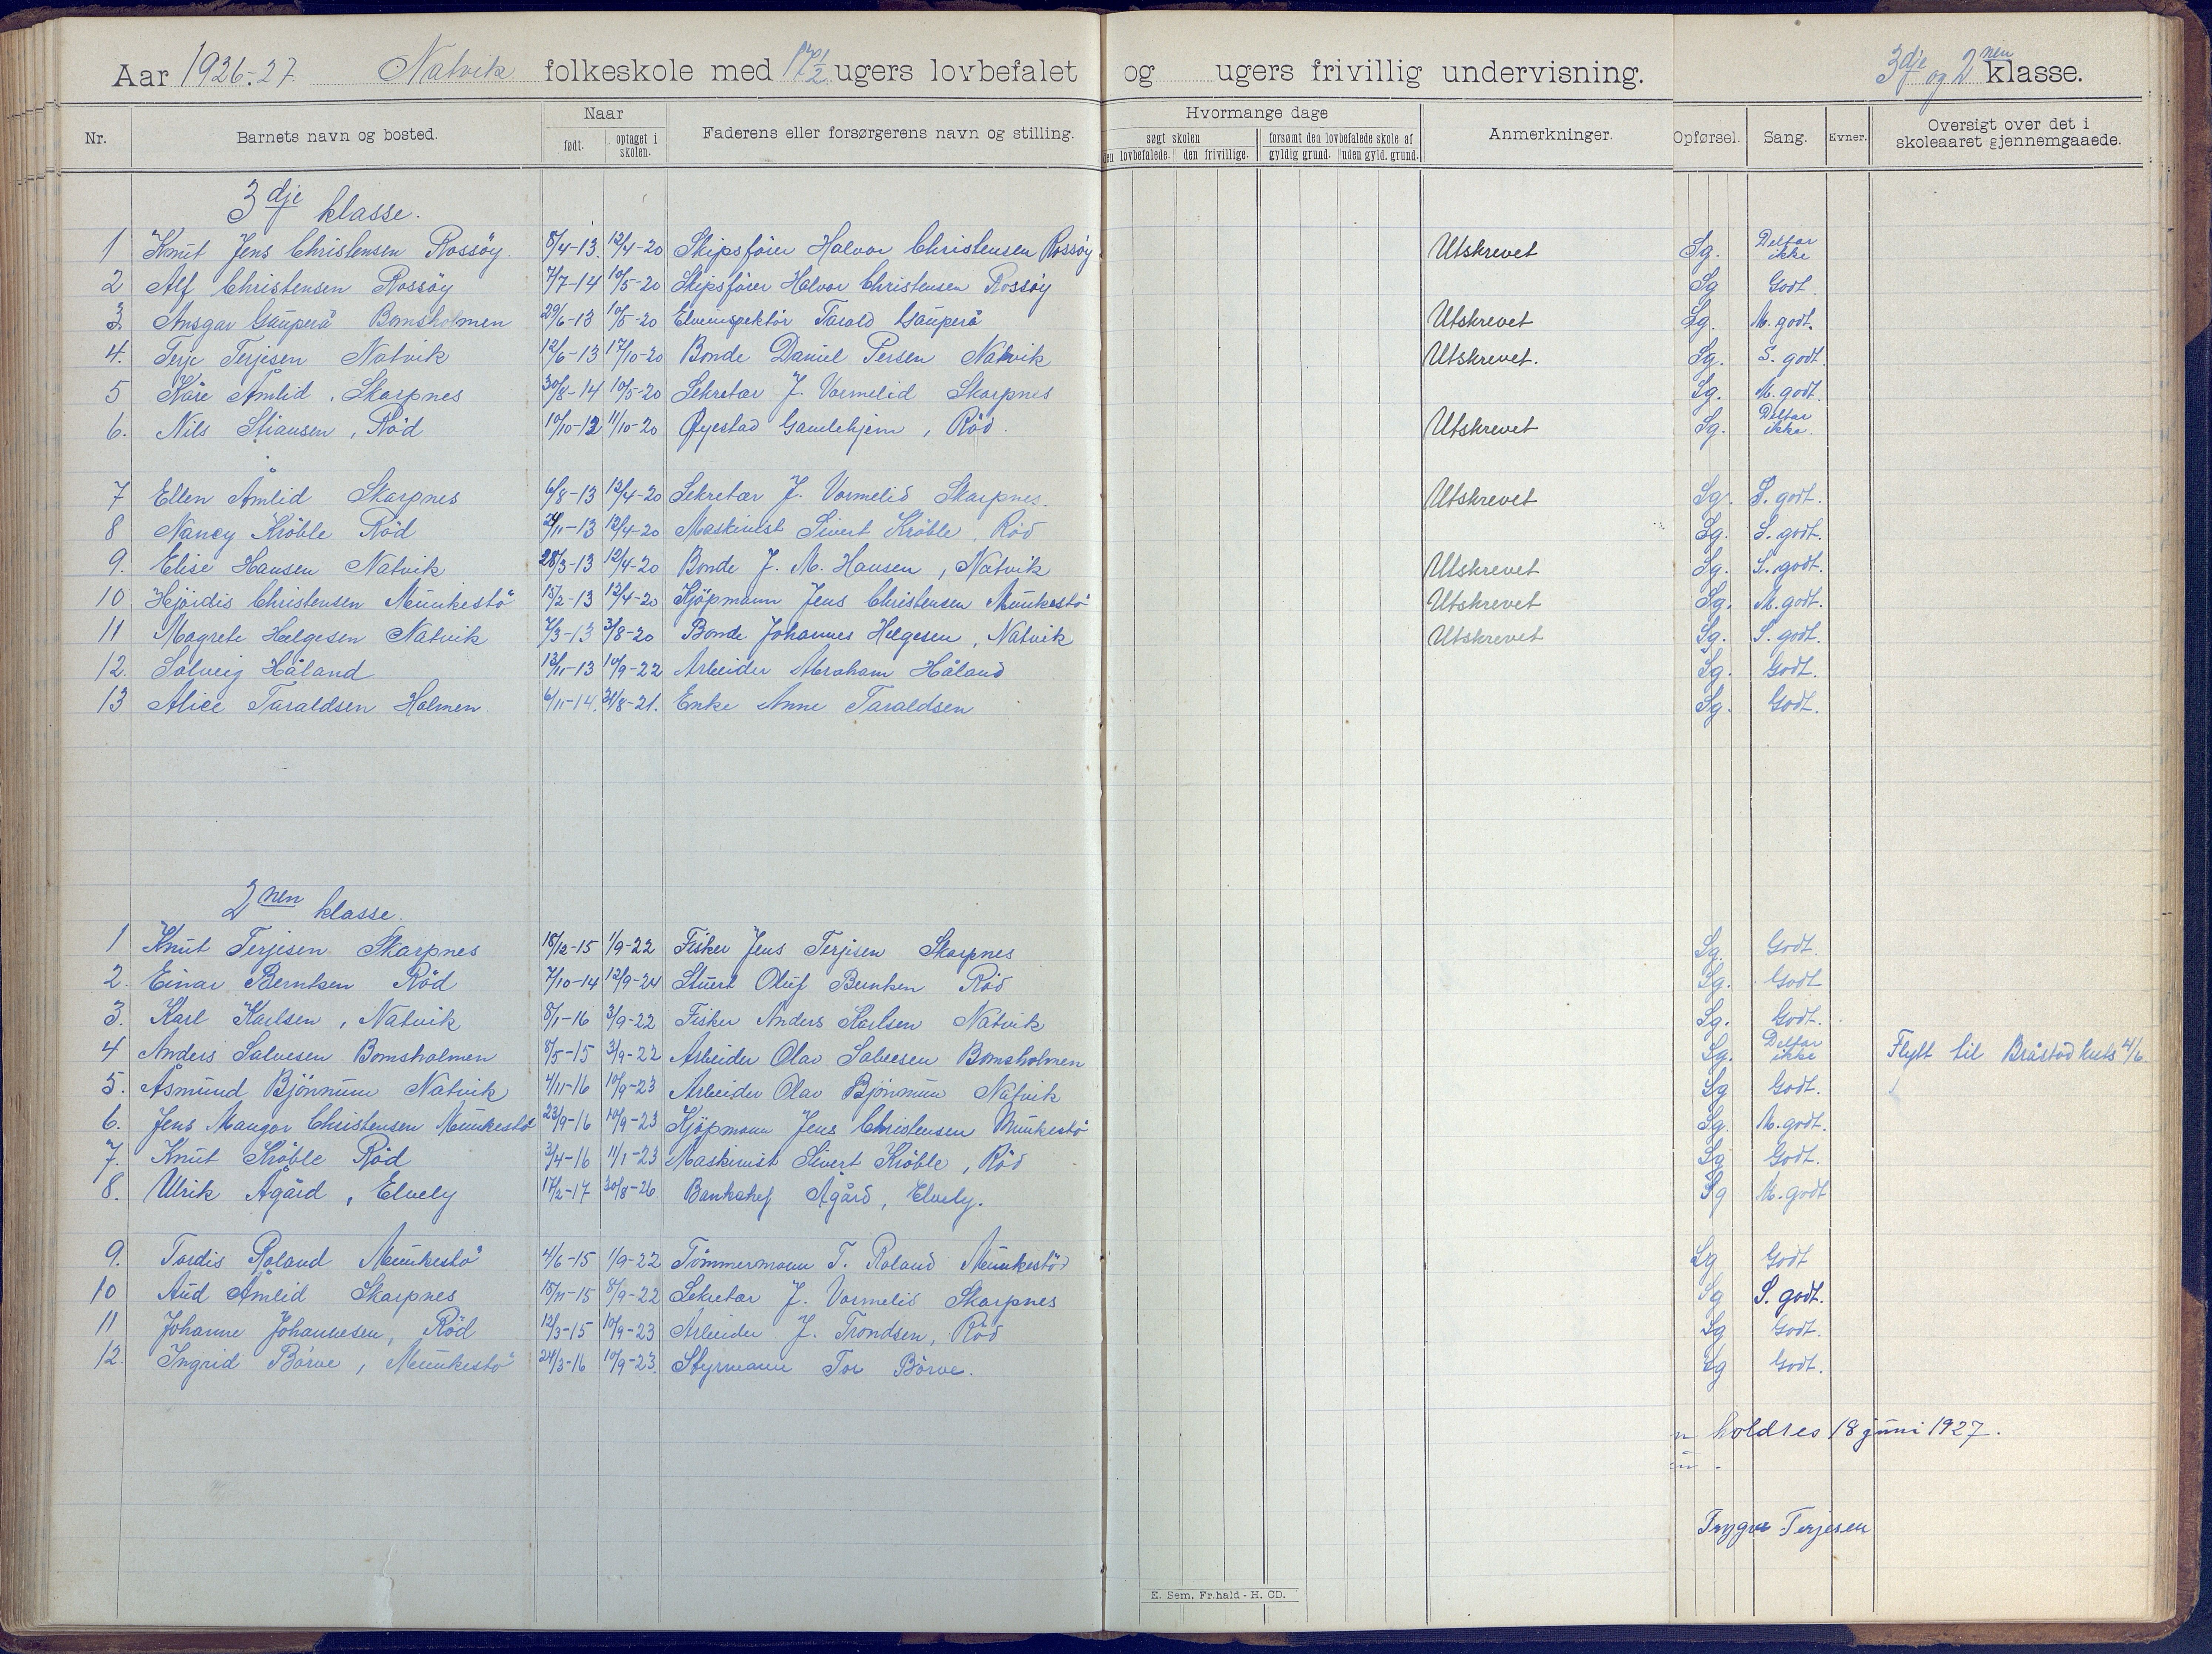 Aar 1926-27. Natvik folkeskole med 17 1/2 ugers lovbefalet og ugers frivillig undervisning. 3dje og 2nen klasse.
Nr. Barnets navn og bosted. Naar født. optaget i skolen. Faderens eller forsørgerens navn og stilling. Hvormange dage søgt skolen den lovbefalede. den frivillige. forsømt den lovbefalede skole af gyldig grund. uden gyld. grund. Anmerkninger. Opførsel. Sang. Evner. Oversigt over det i skoleaaret gjennemgaaede.
3dje klasse.
1 Knut Jens Christensen Rossöy. 8/4-13. 12/4-20 Skipsfører Halvor Christensen Rossöy Utskrevet Sg. Deltar ikke
2 Alf Christensen Rossöy 7/7-14 10/5-20 Skipsfører Halvor Christensen Rossöy Sg Godt
3. Ansgar Gauperå Bomsholmen 29/6-13 10/5-20 Elveinspektör Tarald Gauperå Utskrevet Sg. M. godt.
4. Terje Terjesen Natvik 12/6-13 17/10-20 Bonde Daniel Persen Natvik Utskrevet. Sg. S. godt.
5 Kåre Åmlid, Skarpnes 30/8-14 10/5-20 Sekretær J. Vormelid Skarpnes Sg. M. godt.
6. Nils Stiansen, Röd 10/10-12 11/10-20 Øyestad Gamlehjem, Röd. Utskrevet Sg. Deltar ikke.
7 Ellen Åmlid Skarpnes 6/8-13 12/4-20 Sekretær J. Vormelid Skarpnes. Utskrevet Sg. S. godt.
8 Nancy Kröble Röd 24/11-13 12/4-20 Maskinist Sivert Kröble, Röd Sg. S. godt.
9. Elise Hansen Natvik 28/3-13 12/4-20 Bonde J. M. Hansen, Natvik Utskrevet Sg. S. godt.
10 Hjördis Christensen Munkestö 15/2-13 12/4-20 Kjöpmann Jens Christensen Munkestö Utskrevet Sg. M. godt.
11 Magrete Helgesen Natvik 7/3-13 3/8-20 Bonde Johannes Helgesen, Natvik Utskrevet Sg. S. godt.
12. Solveig Håland 13/11-13 10/9-22 Arbeider Abraham Håland Sg. Godt.
13 Alice Taraldsen Holmen. 6/11-14. 31/8-21. Enke Anne Taraldsen Sg. Godt.
2nen klasse.
1 Knut Terjesen Skarpnes 18/12-15 1/9-22 Fisker Jens Terjesen Skarpnes Sg. Godt.
2. Einar Berntsen Röd 7/10-14 12/9-24 Stuert Oluf Berntsen Röd Sg. Godt
3. Karl Karlsen, Natvik 8/1-16 3/9-22 Fisker Anders Karlsen Natvik Sg. Godt.
4 Anders Salvesen Bomsholmen 8/5-15 3/9-22 Arbeider Olav Salvesen Bomsholmen Sg. Deltar ikke Flytt til Bråstad kets 4/6
5. Åsmund Bjönnum Natvik 4/11-16 10/9-23 Arbeider Olav Bjönnum Natvik Sg Godt.
6. Jens Mangor Christensen Munkestö 23/9-16 10/9-23 Kjöpmann Jens Christensen Munkestö Sg. M. godt.
7. Knut Kröble Röd 3/4-16 11/1-23 Maskinist Sivert Kröble, Röd Sg Godt.
8. Ulrik Ågård, Elvely 17/2-17 30/8-26 Banksjef Ågård, Elvely. Sg M. godt
9. Tordis Roland Munkestö 4/6-15 1/9-22 Tömmermann T. Roland Munkestöd Sg Godt
10 Aud Åmlid Skarpnes 18/11-15 8/9-22 Sekretær J. Vormelid Skarpnes Sg S. godt.
11 Johanne Johannesen, Röd 12/3-15 10/9-23 Arbeider J. Trondsen, Röd Sg Godt.
12. Ingrid Börve, Munkestö 24/3-16 10/9-23. Styrmann Tor Börve. Sg Godt.
holdtes 18 juni 1927.
Trygve Terjesen
E. Sem, Fr.hald - H. CD.